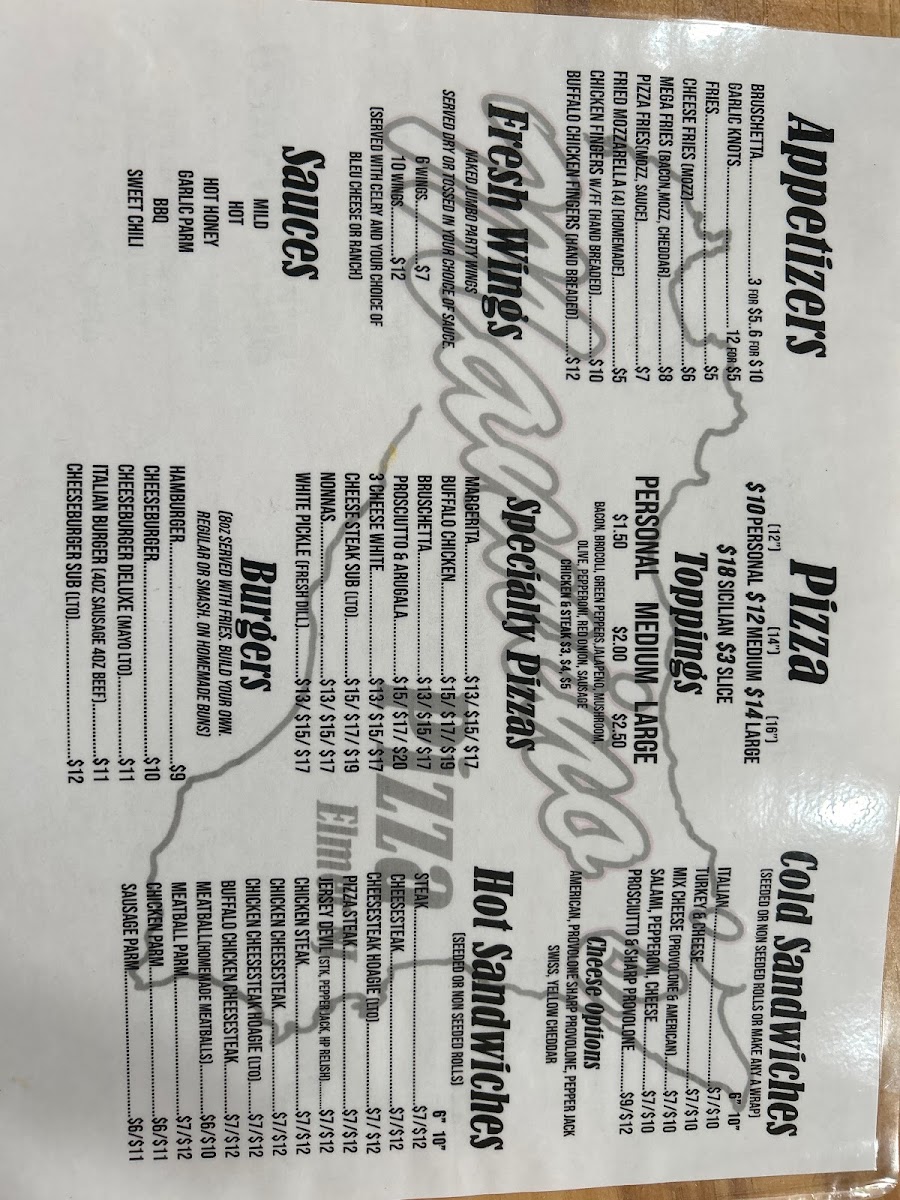 Appetizers
BRUSCHETTA..........3 FOR $5..6 FOR $10
GARLIC KNOTS..........12 FOR $5
FRIES..........$5
CHEESE FRIES (MOZZ)..........$6
MEGA FRIES (BACON, MOZZ, CHEDDAR)..........$8
PIZZA FRIES(MOZZ, SAUCE)..........$7
FRIED MOZZARELLA (4) (HOMEMADE)..........$5
CHICKEN FINGERS W/FF (HAND BREADED)..........$10
BUFFALO CHICKEN FINGERS (HAND BREADED)..........$12
Fresh Wings
NAKED JUMBO PARTY WINGS
SERVED DRY OR TOSSED IN YOUR CHOICE OF SAUCE.
6 WINGS..........$7
10 WINGS..........$12
(SERVED WITH CELRY AND YOUR CHOICE OF
BLEU CHEESE OR RANCH)
Sauces
MILD
HOT
HOT HONEY
GARLIC PARM
BBQ
SWEET CHILI
Pizza
(12") (14") (16")
$10 PERSONAL $12 MEDIUM $14 LARGE
$18 SICILIAN $3 SLICE
Toppings
PERSONAL MEDIUM LARGE
$1.50 $2.00 $2.50
BACON, BROCOLI, GREEN PEPPERS, JALAPENO, MUSHROOM,
OLIVE, PEPPERONI, RED ONION, SAUSAGE
CHICKEN & STEAK $3, $4, $5
Specialty Pizzas
MARGERITA..........$13/ $15/ $17
BUFFALO CHICKEN..........$15/ $17/ $19
BRUSCHETTA..........$13/ $15/ $17
PROSCIUTO & ARUGALA..........$15/ $17/ $20
3 CHEESE WHITE..........$13/ $15/ $17
CHEESE STEAK SUB (LTO)..........$15/ $17/ $19
NONNAS..........$13/ $15/ $17
WHITE PICKLE (FRESH DILL)..........$13/ $15/ $17
Burgers
(8OZ SERVED WITH FRIES. BUILD YOUR OWN.
REGULAR OR SMASH. ON HOMEMADE BUNS)
HAMBURGER..........$9
CHEESEBURGER..........$10
CHEESEBURGER DELUXE (MAYO LTO)..........$11
ITALIAN BURGER (4OZ SAUSAGE 4OZ BEEF)..........$11
CHEESEBURGER SUB (LTO)..........$12
Cold Sandwiches
(SEEDED OR NON SEEDED ROLLS OR MAKE ANY A WRAP)
6" 10"
ITALIAN..........$7/$10
TURKEY & CHEESE..........$7/$10
MIX CHEESE (PROVOLONE & AMERICAN)..........$7/$10
SALAMI, PEPPERONI, CHEESE..........$7/$10
PROSCIUTTO & SHARP PROVOLONE..........$9/$12
Cheese Options
AMERICAN, PROVOLONE SHARP PROVOLONE, PEPPER JACK
SWISS, YELLOW CHEDDAR
Hot Sandwiches
(SEEDED OR NON SEEDED ROLLS)
6" 10"
STEAK..........$7/$12
CHEESESTEAK..........$7/$12
CHEESESTEAK HOAGIE (LTO)..........$7/ $12
PIZZA STEAK..........$7/$12
JERSEY DEVIL (STK, PEPPER JACK, HP RELISH)..........$7/$12
CHICKEN STEAK..........$7/$12
CHICKEN CHEESESTEAK..........$7/$12
CHICKEN CHEESESTEAK HOAGIE (LTO)..........$7/$12
BUFFALO CHICKEN CHEESESTEAK..........$7/$12
MEATBALL(HOMEMADE MEATBALLS)..........$6/$10
MEATBALL PARM..........$7/$12
CHICKEN PARM..........$6/$11
SAUSAGE PARM..........$6/$11
Pizza